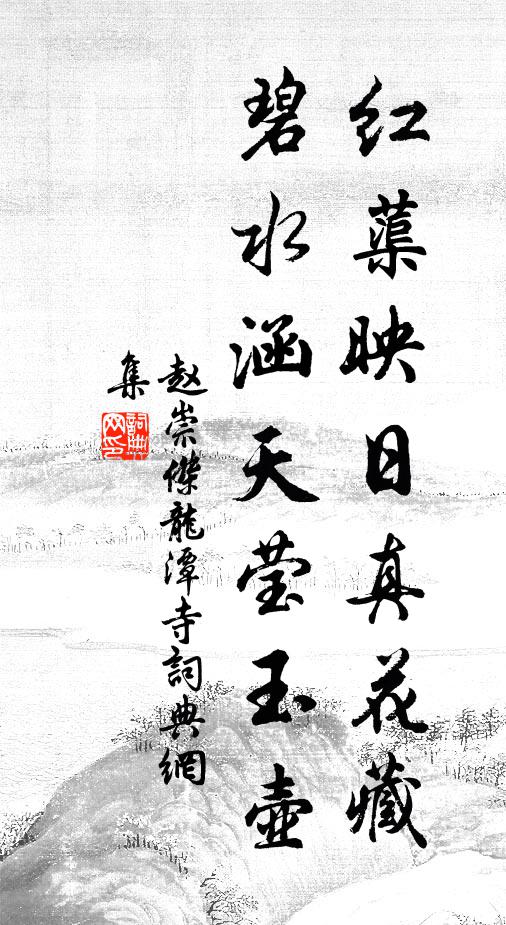 红蕖映日真花藏
碧水涵天莹玉壶
赵崇傑龍潭寺詞典網
集
詞典網印